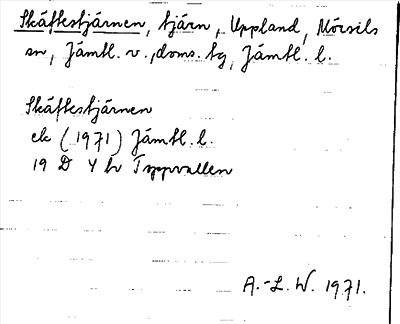 Skäftestjärnen, tjärn, Uppland, Mörsils
sn, Jämtl. v., doms. tg, Jämtl. l.
Skäftestjärnen
ek (1971) Jämtl. l.
19 D 4 h
A.-L. W. 1971.